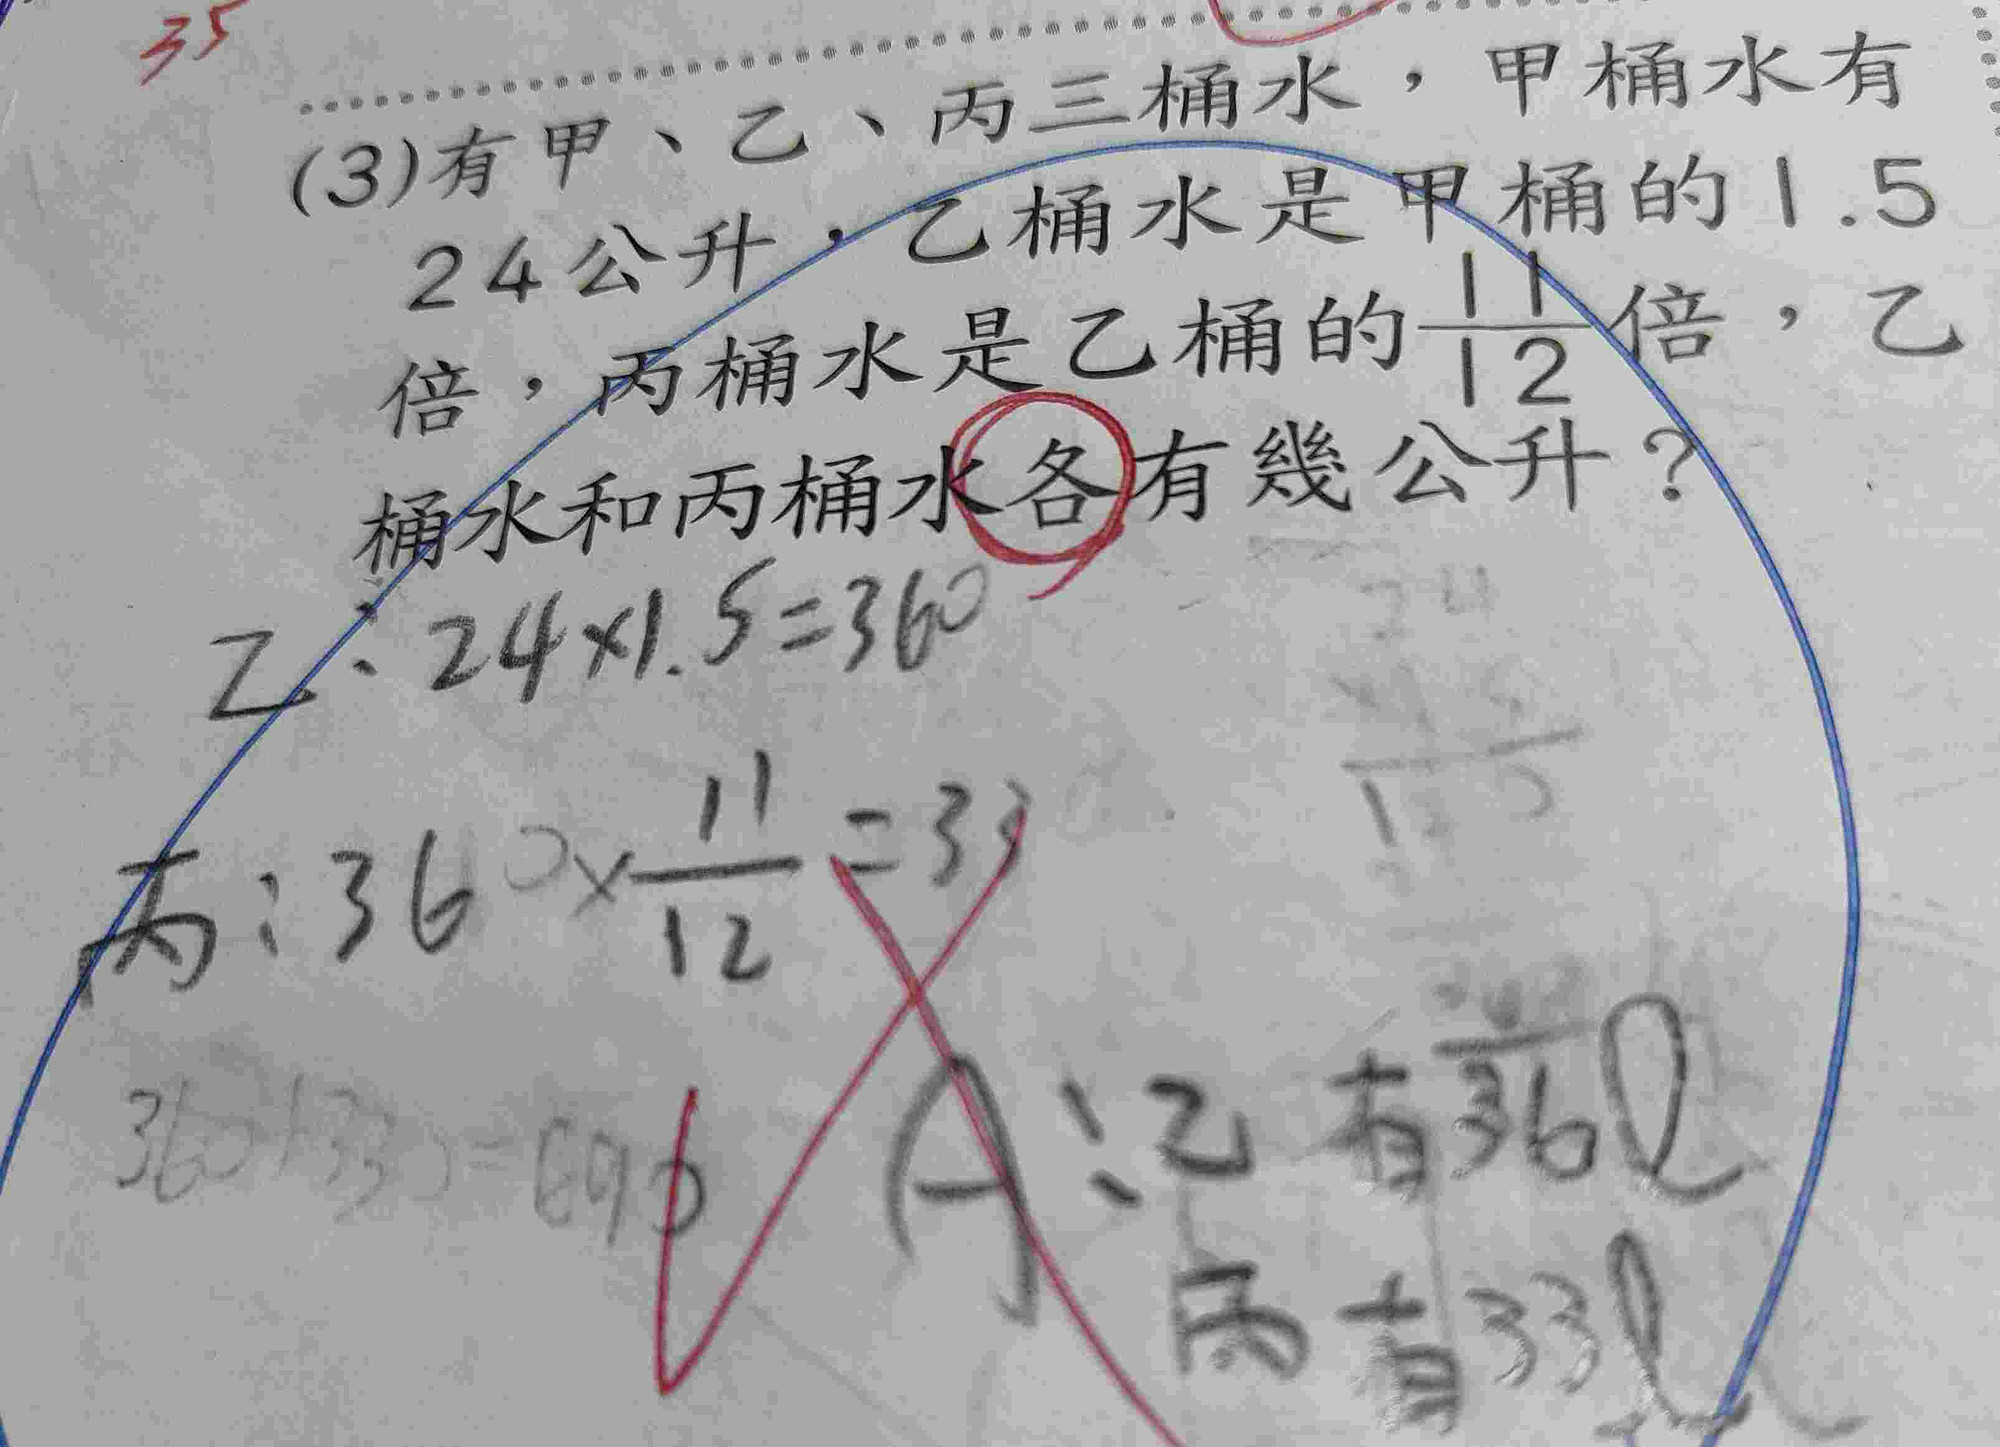 35
(3)有甲、乙、丙三桶水，甲桶水有
24公升，乙桶水是甲桶的1.5
倍，丙桶水是乙桶的11/12倍，乙
桶水和丙桶水各有幾公升？
乙：24×1.5=360
丙：360×11/12=33
360+330=690
A：乙有36l
丙有33l